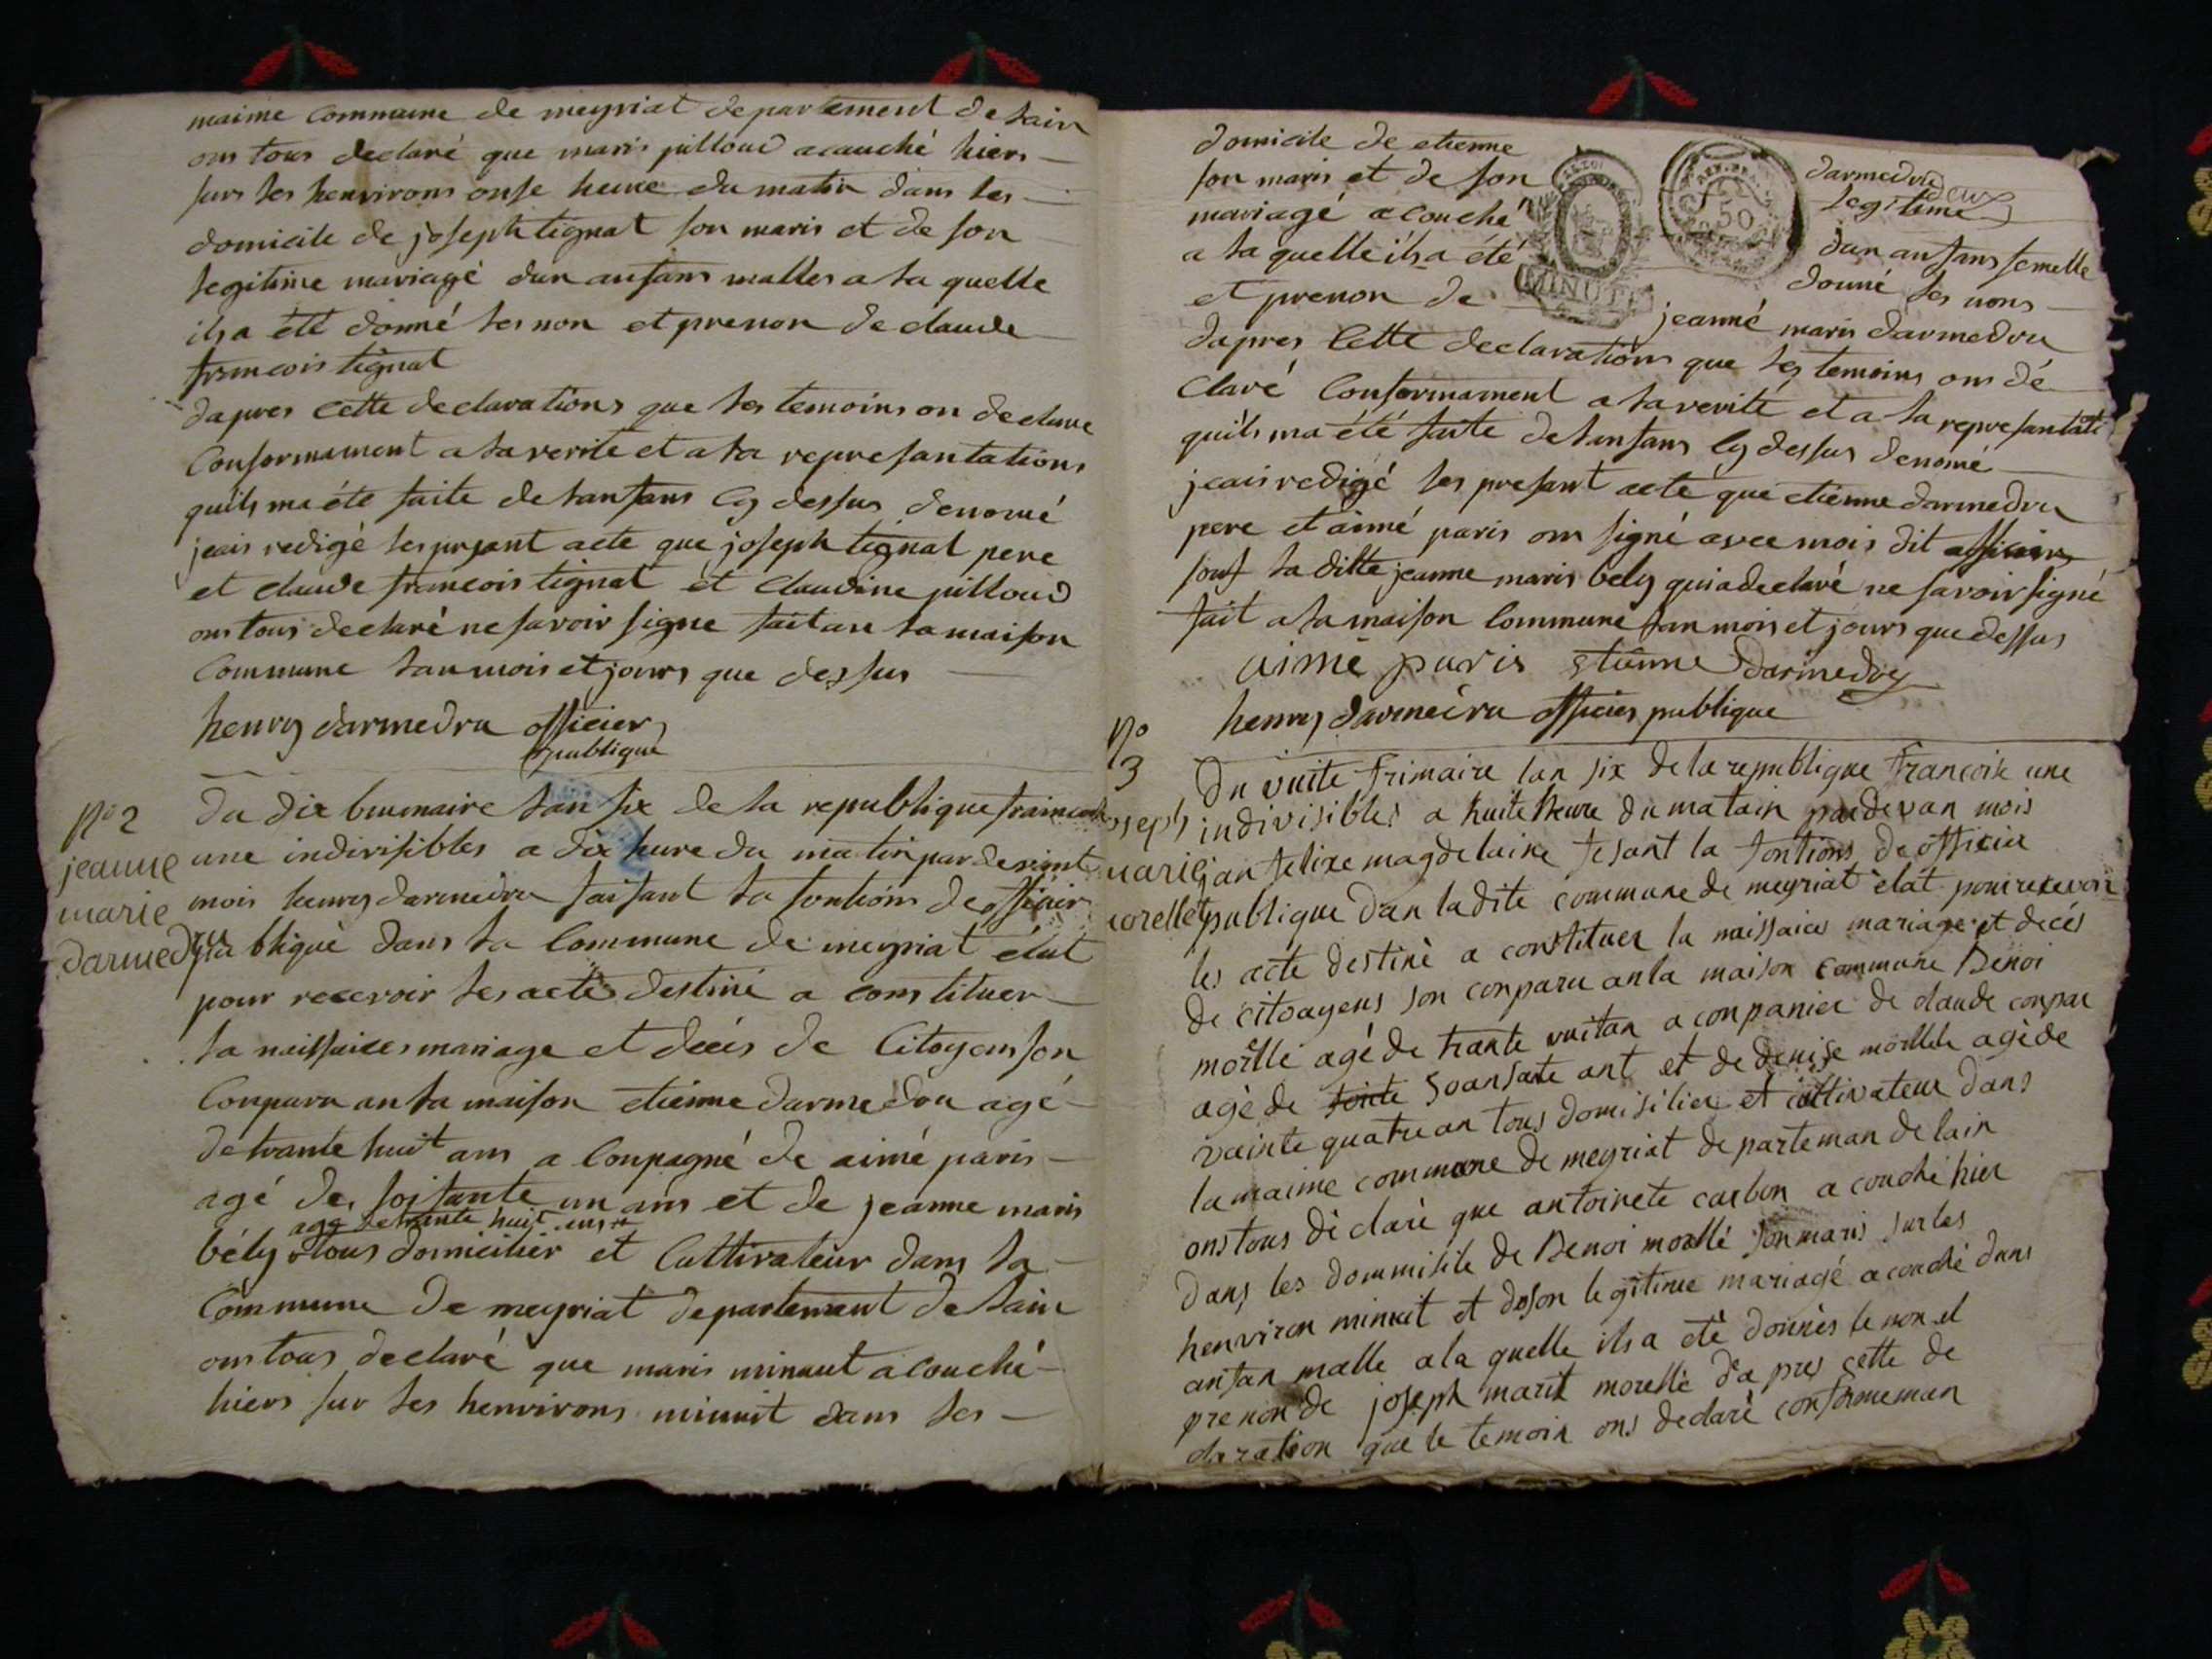 maime commune de meyriat departement de lain
ons tous declaré que maris pilloud acauché hiers
surs les henvirons onse heure du matin dans les
domicile de joseph tignat son maris et de son
legitime mariagé dun ansans malles a la quelle
ils a été donné les non et prenon de claude
francois tignat
dapres cette declarations que les temoins on declaré
Conformament a la verité et a la represantations
quils ma été faite de lansans cy dessus denomé
jeais redigé les prçant acte que joseph tignat pere
et claude francois tignat et Claudine pilloud
ons tous declaré ne savoir signe fait an la maison
Commune lan mois et jours que dessus
henry darmedru officier
publique
No 2
jeanne
marie
darmedru
Du dix brumaire lan six de la republique francoise
une indivisibles a dix heure du matin par devant
mois henry darmedru faisant la fontions de officier
publique dans la Commune de meyriat élut
pour recevoir les acte destiné a constituer
la naissaices mariage et décés de Citoyens son
Conparu an la maison etienne darmedru agé
de trante huit ans a Conpagné de aimé paris
agé de soisante un ans et de jeanne maris
agé de trante huit ans
bély tous domicilier et Cultivateur dans la
Commune de meyriat departement de lain
ons tous declaré que maris minaut acouché
hiers sur les henvirons minuit dans les
domicile de etienne darmedru
son maris et de son legitime
mariagé acouché dun ansans femelle
a la quelle ils a été donné les nons
et prenon de jeanné maris darmedru
MINUTE
50
deux
dapres Cette declarations que les temoins ons dé
claré Conformament a la verité et a la represantati
quils ma été faite de lansans cy dessus denomé
jeais redigé les presant acte que etienne darmedru
pere et aimé paris ons signé avec mois dit officier
souf la ditte jeanne maris bely qui a declaré ne savoir signé
fait a la maison Commune lan mois et jours que dessus
aimé paris etienne darmedru
henry darmedru officier publique
No
3
oseph
marie
morellet
Du vuite frimaire lan six de la republique francoise une
indivisibles a huite heure du matain pardevan mois
jan felixe magdelaine fesant la fontions de officier
publique dan ladite commune de meyriat élat pour recevoir
les acte destiné a constituer la naissaice mariage et decés
de citoayens son conparu an la maison commune Benoi
morllé agé de trante vuitan a conpanier de claude conpar
agé de soansate ant et de denise morllele agé de
vainte quatre an tous domisilier et cultivateur dans
la maime commune de meyriat de parteman de lain
ons tous dé claré que antoinete carbon a couché hier
dans les dommisile de Benoi morllé son maris sur les
henviron minuit et deson legitime mariagé a couché dans
ansan malle a la quelle ils a eté donnés le non et
prenon de joseph marit morellé da pres cette de
claration que le temoin ons declaré conformeman